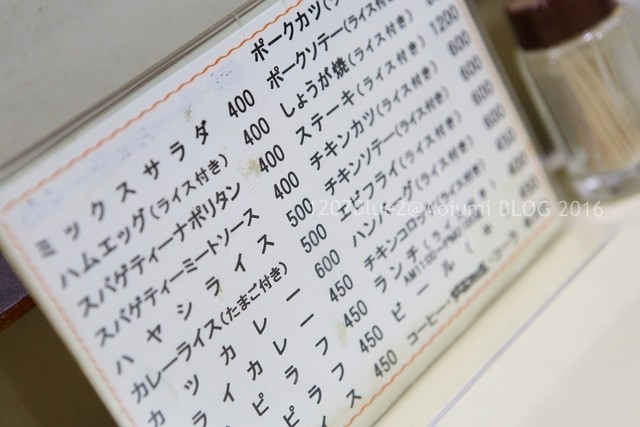 ミックスサラダ 400
ハムエッグ(ライス付き) 400
スパゲティーナポリタン 400
スパゲティーミートソース 400
ハヤシライス 500
カレーライス(たまご付き) 500
カツカレー 600
ライカレー 450
ピラフ 450
ピラフ 450
ス 450
ポークカツ(
ポークソテー(ライス付き)
しょうが焼(ライス付き)
ステーキ(ライス付き) 1200
チキンカツ(ライス付き) 600
チキンソテー(ライス付き) 600
エビフライ(ライス付き) 600
ハンバーグ(ライス付き) 600
チキンコロ
ランチ(
ビール(
コーヒー・
@Aoiumi BLOG 2016